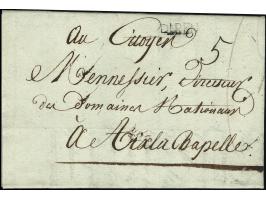 au Citoyen 5
Mennessier, Directeur
des Domaines Nationaux
à Aix la Chapelle.